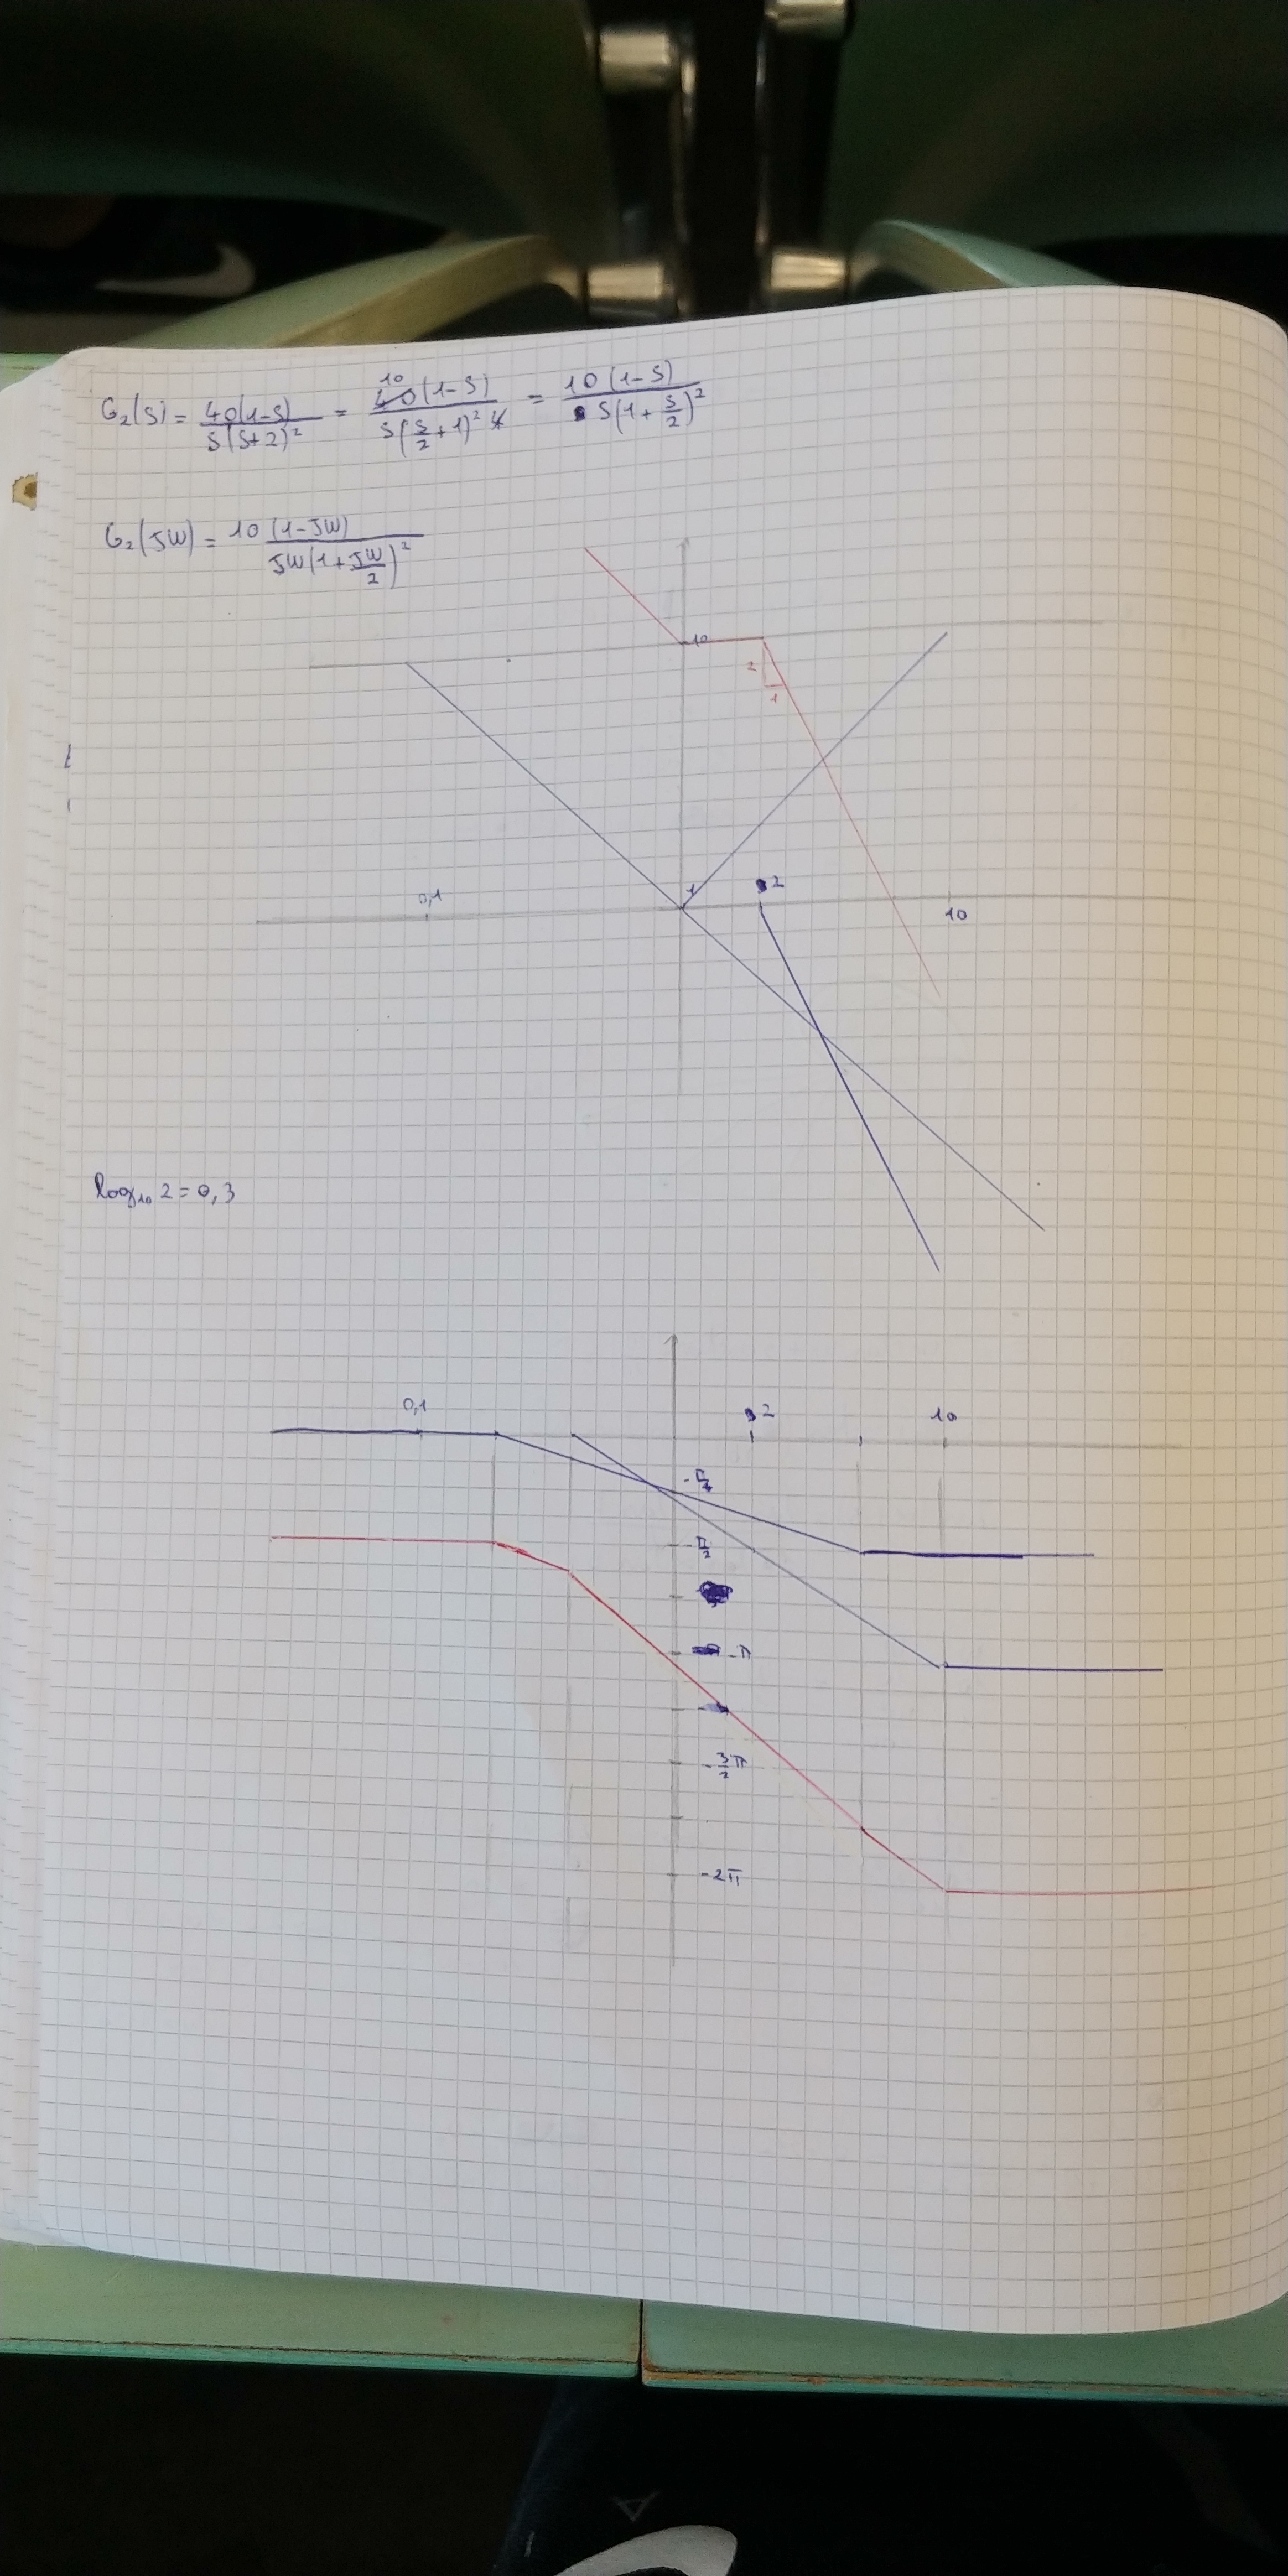 G₂(s) = 40(1-s) / s(s+2)² = 10 40(1-s) / s(s/2+1)² 4 = 10(1-s) / s(1+s/2)²
G₂(jw) = 10 (1-jw) / jw(1+jw/2)²
10
2
1
0,1
1
2
10
log₁₀ 2 = 0,3
0,1
2
10
-π/4
-π/2
-π
-3/2 π
-2π